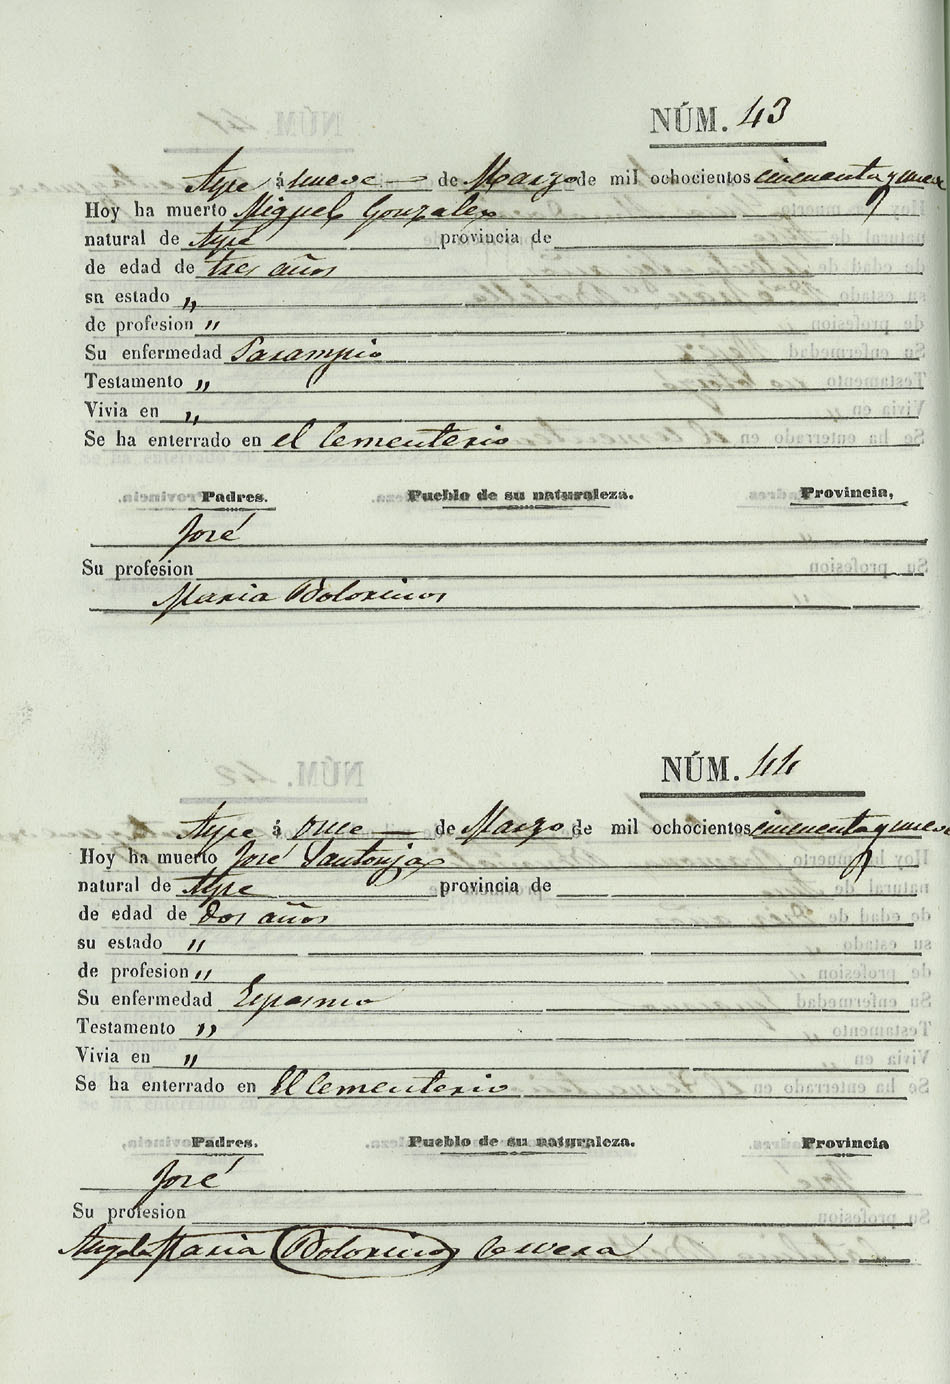 NÚM. 43
Aspe á nueve de Marzo de mil ochocientos cincuenta y nueve
Hoy ha muerto Miguel Gonzalez
natural de Aspe provincia de
de edad de tres años
sn estado "
de profesion "
Su enfermedad Sarampio
Testamento "
Vivia en "
Se ha enterrado en el Cementerio
Padres. Pueblo de su naturaleza. Provincia,
José
Su profesion
Maria Bolorinos
NÚM. 44
Aspe á once de Marzo de mil ochocientos cincuenta y nueve
Hoy ha muerto José Santonja
natural de Aspe provincia de
de edad de dos años
su estado "
de profesion "
Su enfermedad Espasmo
Testamento "
Vivia en "
Se ha enterrado en El Cementerio
Padres. Pueblo de su naturaleza. Provincia
José
Su profesion
Angela Maria Bolorinos Cervera